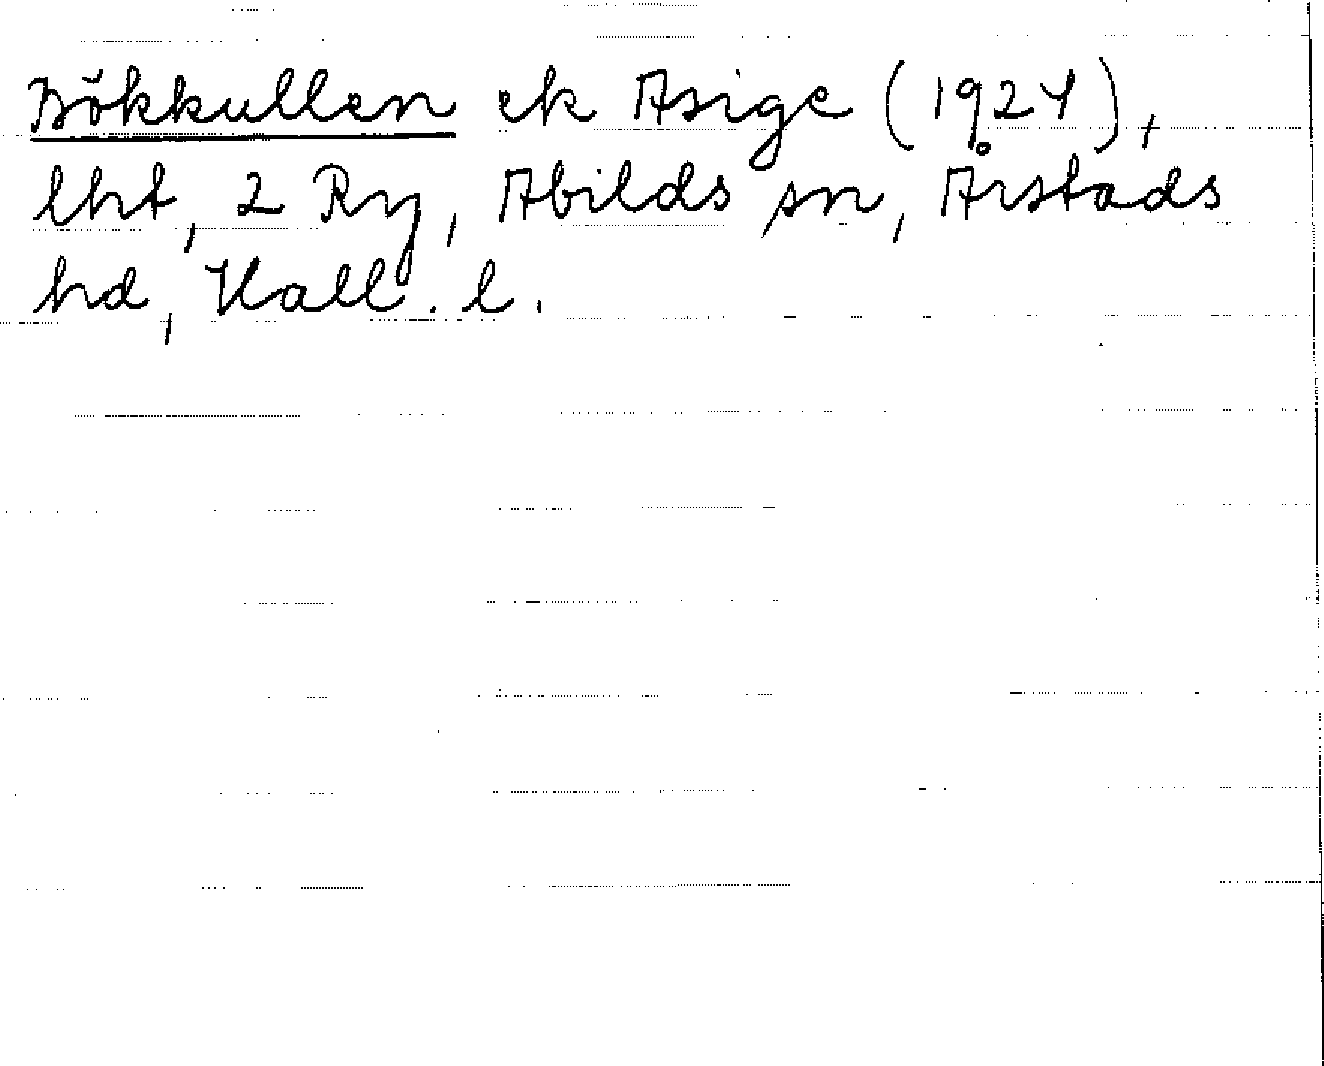 Bökkullen ek Asige (1924),
lht, 2 Ry, Abilds sn, Årstads
hd, Hall. l.